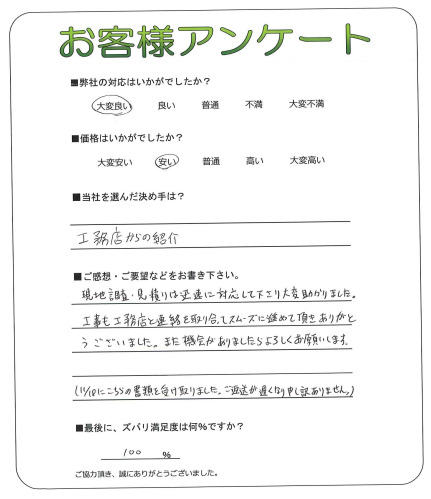 お客様アンケート
■弊社の対応はいかがでしたか？
大変良い 良い 普通 不満 大変不満
■価格はいかがでしたか？
大変安い 安い 普通 高い 大変高い
■当社を選んだ決め手は？
工務店からの紹介
■ご感想・ご要望などをお書き下さい。
現地調査・見積りは迅速に対応して下さり大変助かりました。
工事も工務店と連絡を取り合ってスムーズに進めて頂きありがと
うございました。また機会がありましたらよろしくお願いします。
(11/10にこちらの書類を受け取りました。ご返送が遅くなり申し訳ありません。)
■最後に、ズバリ満足度は何％ですか？
100 %
ご協力頂き、誠にありがとうございました。